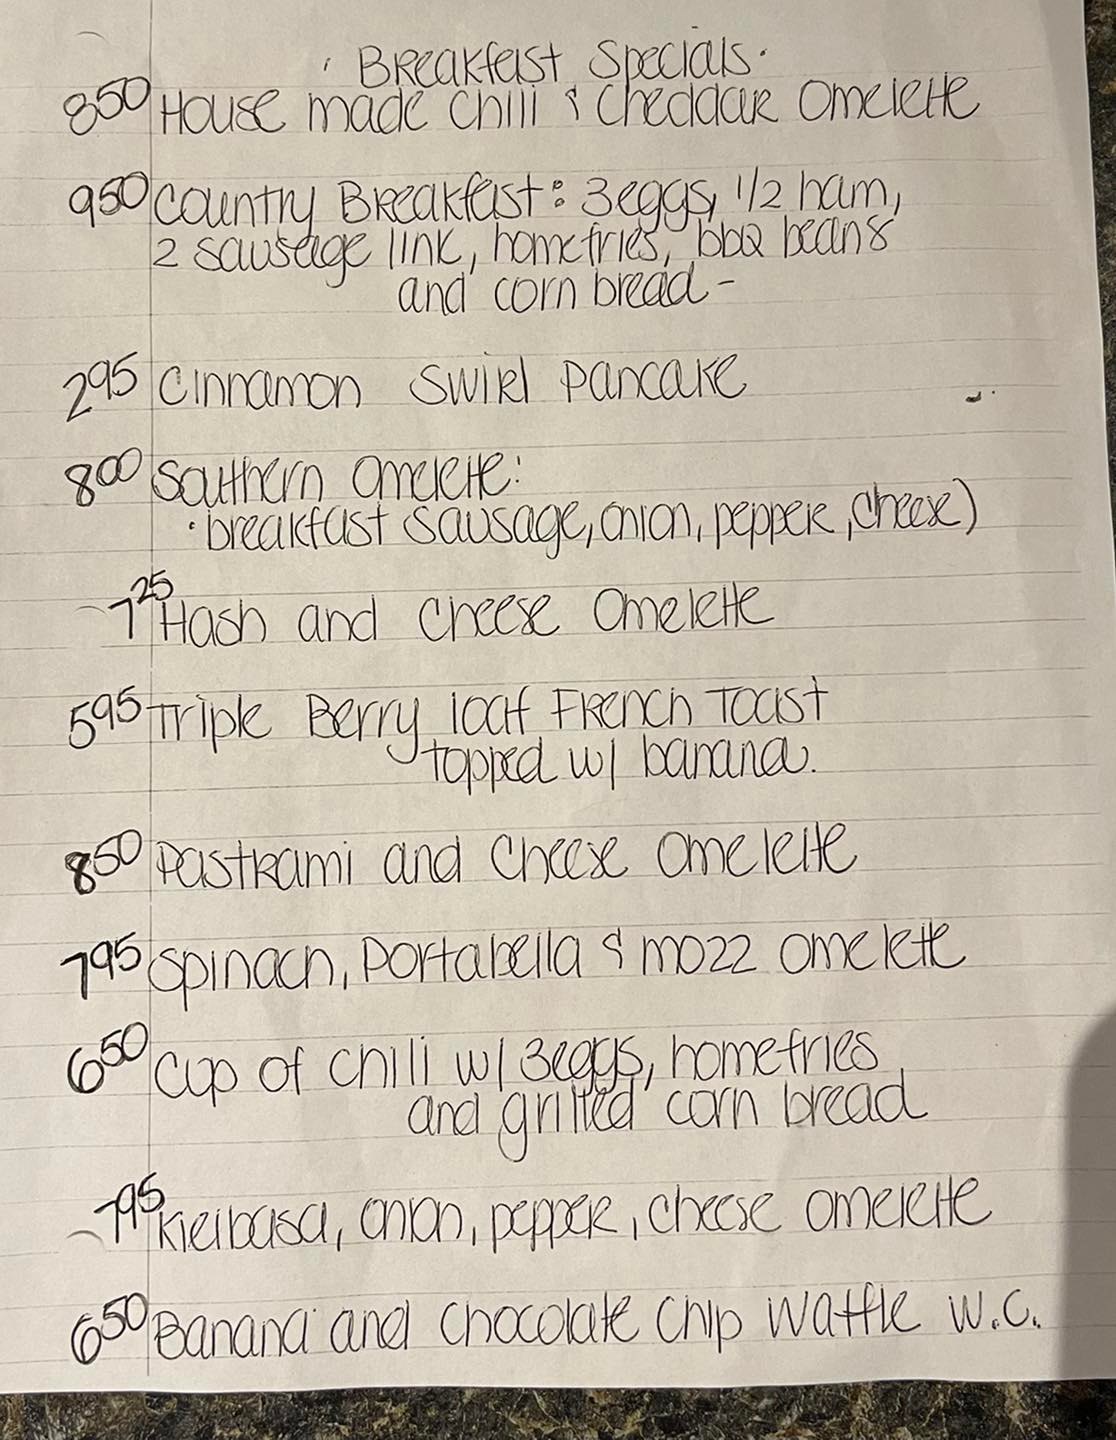 · Breakfast Specials ·
850 House made Chili & Cheddar Omelette
950 Country Breakfast: 3eggs, 1/2 ham,
2 sausage link, homefries, bbq beans
and corn bread -
295 Cinnamon Swirl Pancake
800 Southern Omelette:
· breakfast sausage, onion, pepper, cheese)
725 Hash and Cheese Omelette
595 Triple Berry loaf French Toast
topped w/ banana.
850 Pastrami and Cheese Omelette
795 Spinach, Portabella & mozz omelette
650 Cup of chili w/ 3eggs, homefries
and grilled corn bread
795 Kielbasa, onion, pepper, cheese omelette
650 Banana and Chocolate Chip Waffle w.c.